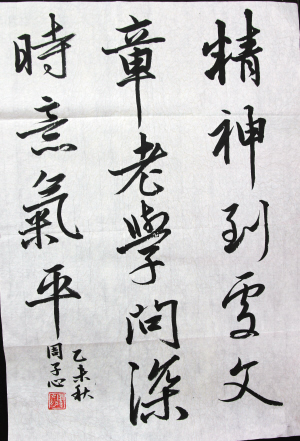 精神到处文
章老學問深
時意氣平
乙未秋
周子心